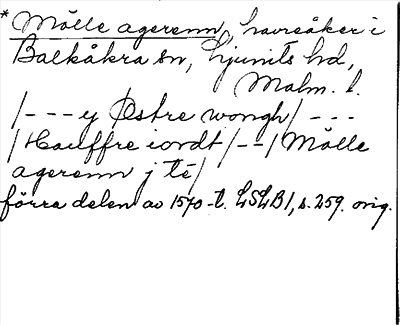 * Mölle agerenn, havreåker i
Balkåkra sn, Ljunits hd,
Malm. l.
/---y Østre wongh/ ---
/Hauffre iordt/--/Mölle
agerenn j té/
förra delen av 1570-t. LSLB1, s. 259. orig.